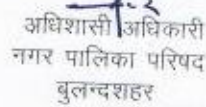 अधिशासी अधिकारी
नगर पालिका परिषद
बुलन्दशहर